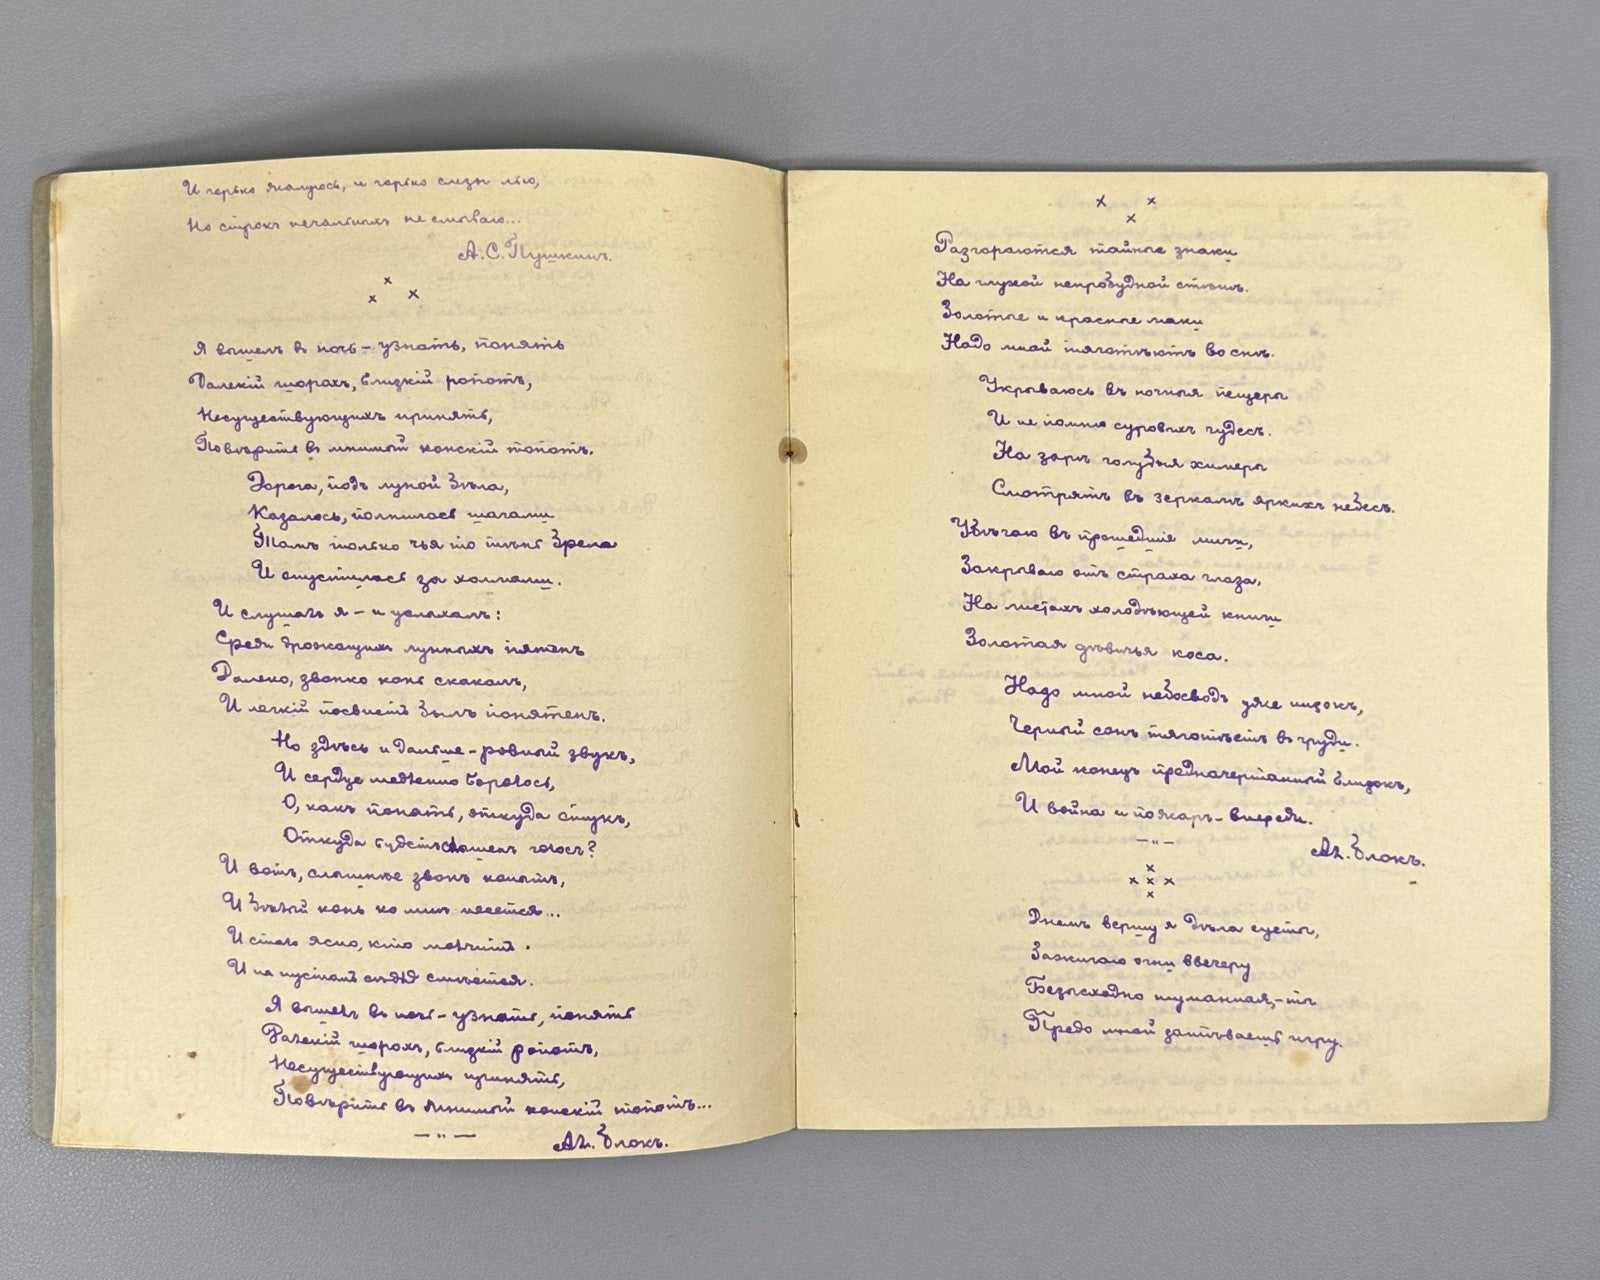 И горько жалуюсь, и горько слезы лью,
Но строкъ печальныхъ не смываю...
А.С. Пушкинъ.
Я вышелъ въ ночь – узнать, понять
Далекій шорохъ, близкій ропотъ,
Несуществующихъ принять,
Повѣрить въ мнимый конскій топотъ.
Дорога, подъ луной бѣла,
Казалось, полнилась шагами
Тамъ только чья то тѣнь брела
И опустилась за холмами.
И слушалъ я – и услыхалъ:
Среди дрожащихъ лунныхъ пятенъ
Далеко, звонко конь скакалъ,
И легкій посвистъ былъ понятенъ.
Но здѣсь и дальше – ровный звукъ,
И сердце медленно боролось,
О, какъ понять, откуда стукъ,
Откуда будетъ слышенъ голосъ?
И вотъ, слышнѣе звонъ копытъ,
И бѣлый конь ко мнѣ несется...
И стало ясно, кто молчитъ.
И на пустомъ сѣдлѣ смѣется.
Я вышелъ въ ночь – узнать, понять
Далекій шорохъ, близкій ропотъ,
Несуществующихъ принять,
Повѣрить въ мнимый конскій топотъ...
Ал. Блокъ.
Разгораются тайные знаки
На глухой непробудной стѣнѣ.
Золотые и красные маки
Надо мной тяготѣютъ во снѣ.
Укрываюсь въ ночныя пещеры
И не помню суровыхъ чудесъ.
На зарѣ голубыя химеры
Смотрятъ въ зеркалѣ яркихъ небесъ.
Убѣгаю въ прошедшіе миги,
Закрываю отъ страха глаза,
На листахъ холодѣющей книги
Золотая дѣвичья коса.
Надо мной небосводъ уже низокъ,
Черный сонъ тяготѣетъ въ груди.
Мой конецъ предначертанный близокъ,
И война и пожаръ – впереди.
Ал. Блокъ.
Днемъ вершу я дѣла суеты,
Зажигаю огни ввечеру
Безысходно туманная, – ты
Предо мной затѣваешь игру.